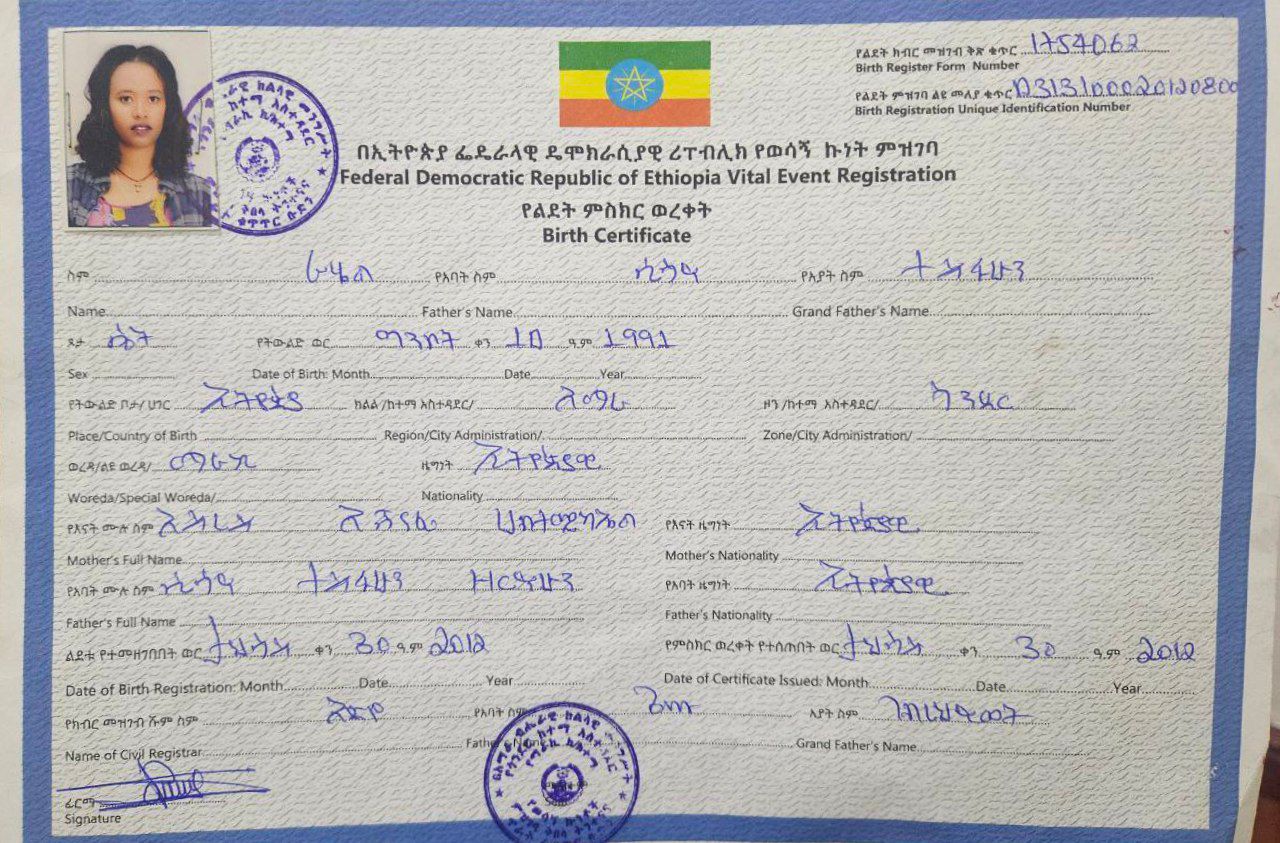 የልደት ክብር መዝገብ ቅጽ ቁጥር 1754062
Birth Register Form Number
የልደት ምዝገባ ልዩ መለያ ቁጥር
Birth Registration Unique Identification Number
በኢትዮጵያ ፌዴራላዊ ዴሞክራሲያዊ ሪፐብሊክ የወሳኝ ኩነት ምዝገባ
Federal Democratic Republic of Ethiopia Vital Event Registration
የልደት ምስክር ወረቀት
Birth Certificate
ስም ራሄል የአባት ስም ሲሳይ የአያት ስም ተስፋሁን
Name Father's Name Grand Father's Name
ጾታ ሴት የትውልድ ወር ግንቦት ቀን 10 ዓ.ም 1991
Sex Date of Birth: Month Date Year
የትውልድ ቦታ/ ሀገር ኢትዮጵያ ክልል/ከተማ አስተዳደር/ አማራ ዞን/ከተማ አስተዳደር/ ጎንደር
Place/Country of Birth Region/City Administration/ Zone/City Administration/
ወረዳ/ልዩ ወረዳ/ ማራኪ ዜግነት ኢትዮጵያዊ
Woreda/Special Woreda/ Nationality
የእናት ሙሉ ስም ሀብተሚካኤል የእናት ዜግነት ኢትዮጵያዊ
Mother's Full Name Mother's Nationality
የአባት ሙሉ ስም ሲሳይ ተስፋሁን የአባት ዜግነት ኢትዮጵያዊ
Father's Full Name Father's Nationality
ልደቱ የተመዘገበበት ወር ታህሳስ ቀን 30 ዓ.ም 2012 የምስክር ወረቀት የተሰጠበት ወር ታህሳስ ቀን 30 ዓ.ም 2012
Date of Birth Registration: Month Date Year Date of Certificate Issued: Month Date Year
የክብር መዝገብ ሹም ስም የአባት ስም አያት ስም
Name of Civil Registrar Father's Name Grand Father's Name
ፊርማ
Signature